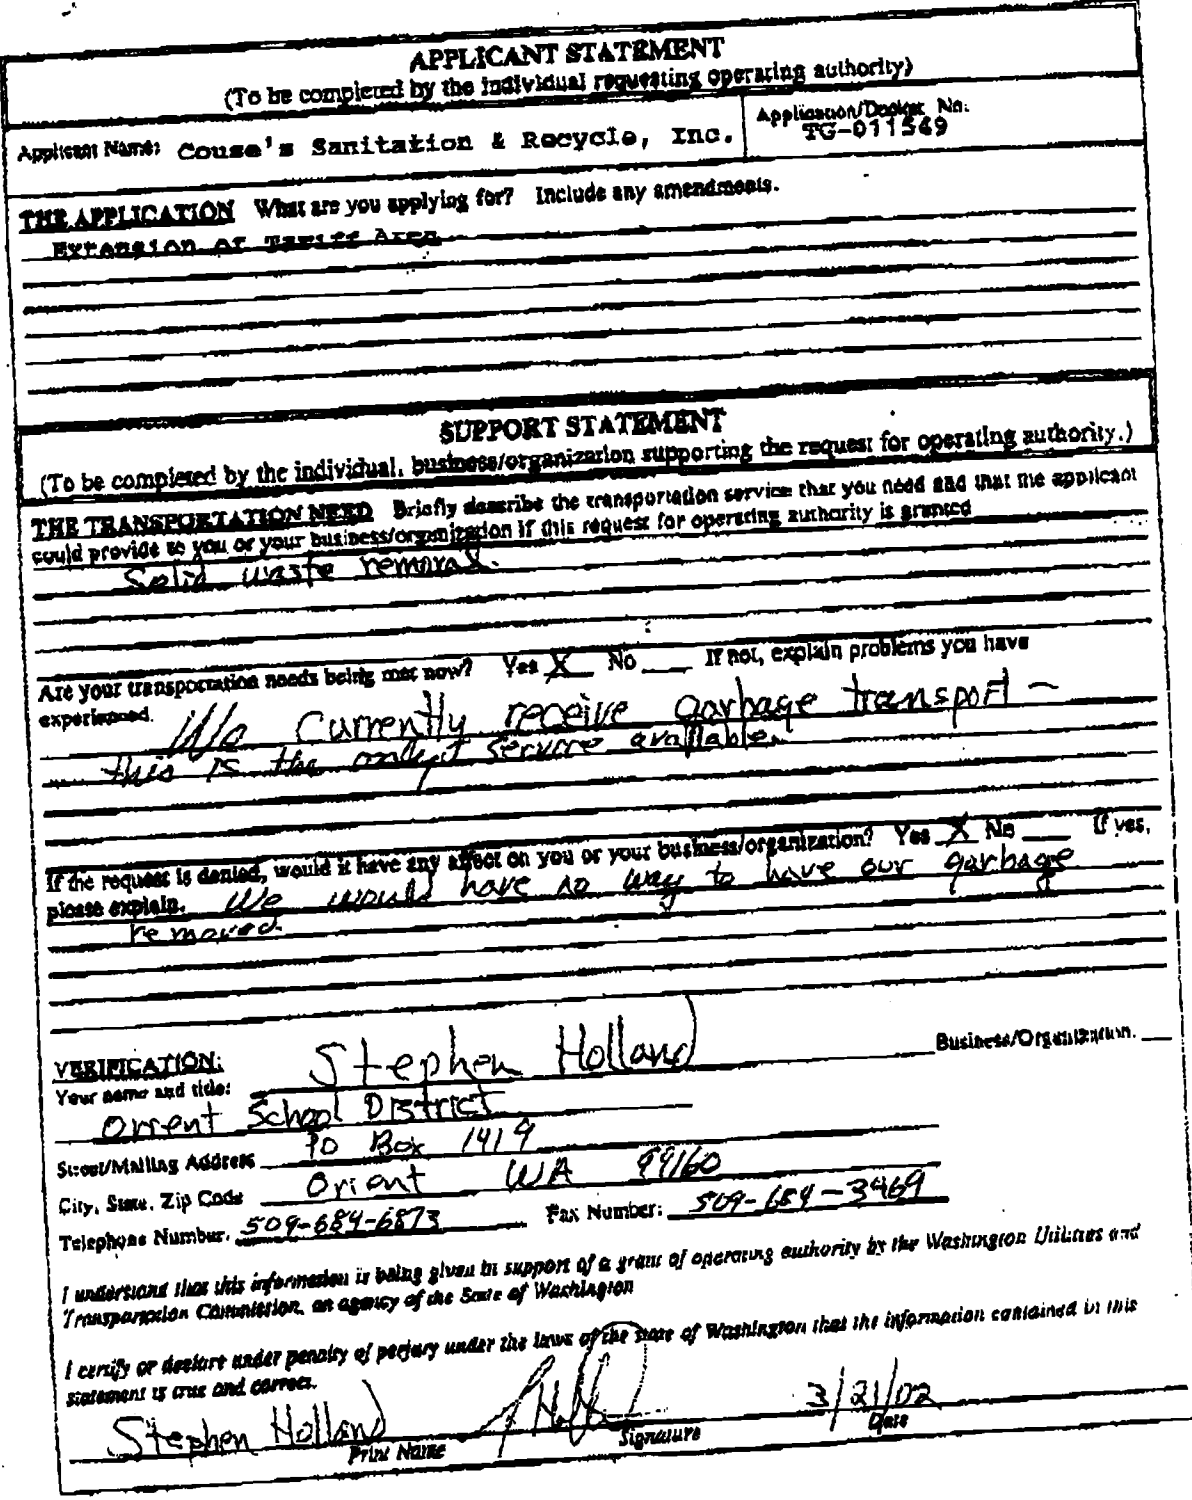 APPLICANT STATEMENT
(To be completed by the individual requesting operating authority)
Applicant Name: Couse's Sanitation & Recycle, Inc.
Application/Docket No:
TG-011549
THE APPLICATION What are you applying for? Include any amendments.
Extension of Tariff Area
SUPPORT STATEMENT
(To be completed by the individual, business/organization supporting the request for operating authority.)
THE TRANSPORTATION NEED Briefly describe the transportation service that you need and that the applicant
could provide to you or your business/organization if this request for operating authority is granted
Solid waste removal.
Are your transportation needs being met now? Yes X No ___ If not, explain problems you have
experienced. We Currently receive garbage transport -
this is the only service available.
If the request is denied, would it have any affect on you or your business/organization? Yes X No ___ If yes,
please explain. We would have no way to have our garbage
removed.
VERIFICATION:
Your name and title: Stephen Holland Business/Organization.
Orient School District
Street/Mailing Address PO Box 1419
City, State, Zip Code Orient WA 99160
Telephone Number. 509-684-6873 Fax Number: 509-684-3469
I understand that this information is being given in support of a grant of operating authority by the Washington Utilities and
Transportation Commission, an agency of the State of Washington
I certify or declare under penalty of perjury under the laws of the state of Washington that the information contained in this
statement is true and correct.
Stephen Holland 3/21/02
Print Name Signature Date